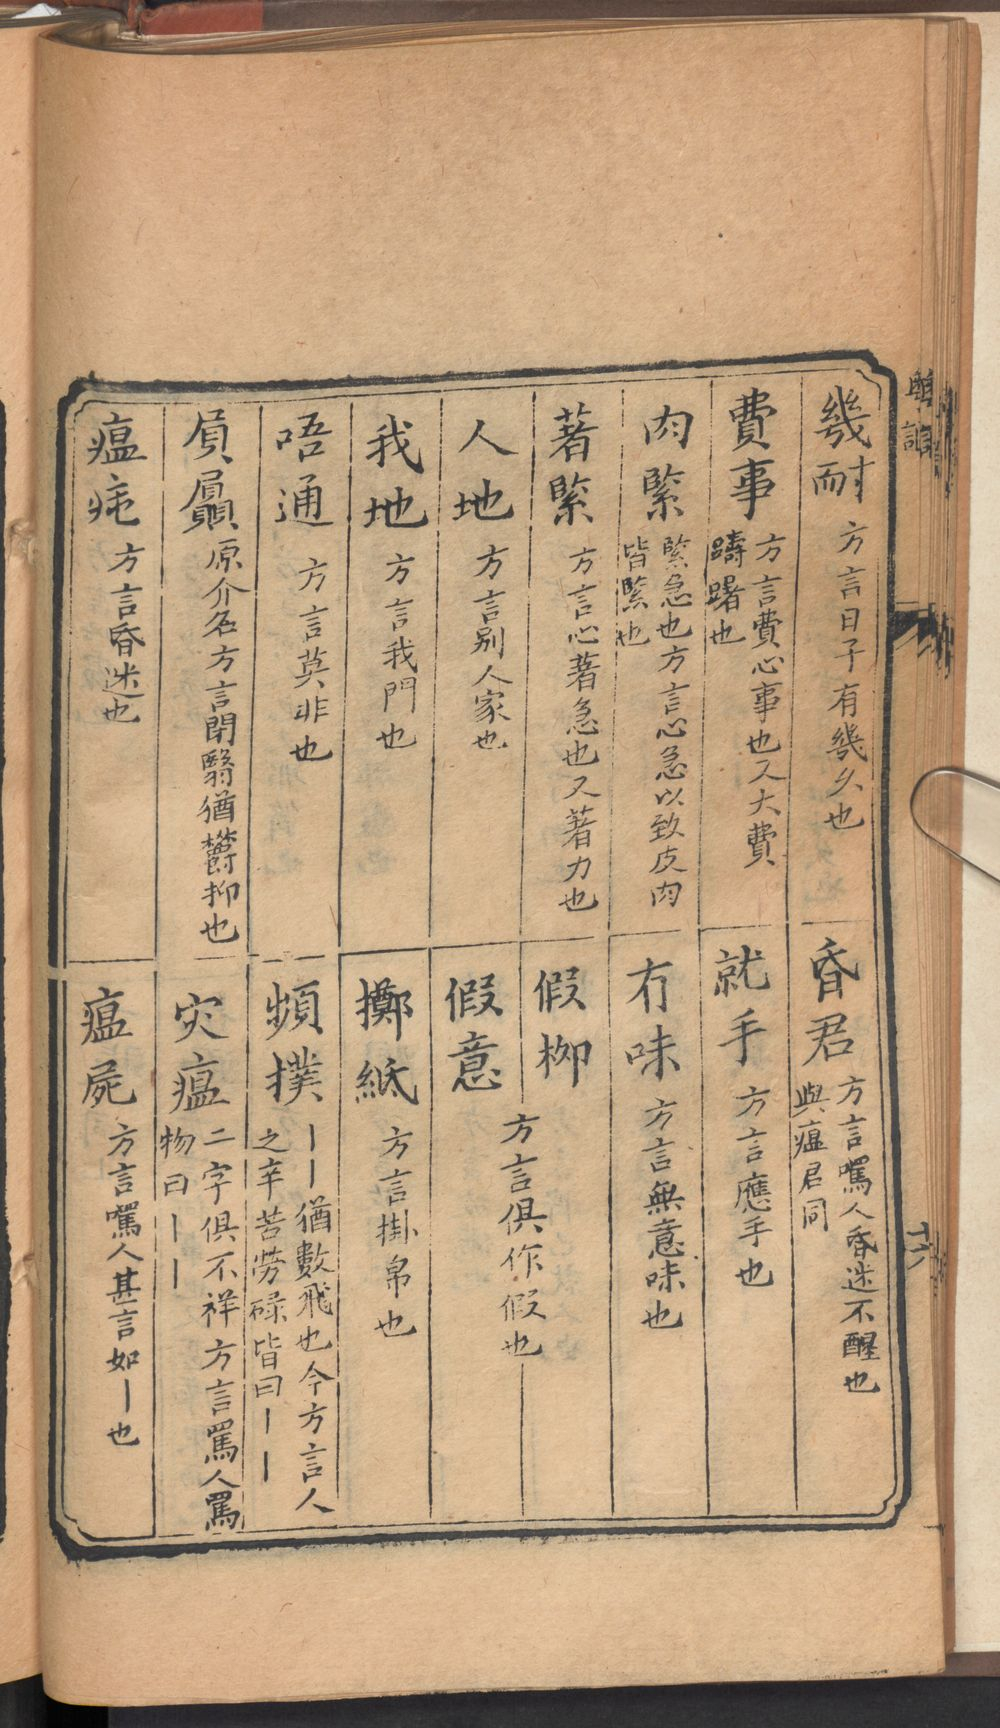 幾耐 方言日子有幾久也
費事 方言費心事也又大費
躊躇也
肉緊 緊急也方言心急以致皮肉
皆緊也
着緊 方言心著急也又著力也
人地 方言別人家也
我地 方言我門也
唔通 方言莫非也
屓贔 原介名方言閉翳猶欝抑也
瘟㾄 方言昏迷也
昏君 方言罵人昏迷不醒也
與瘟君同
就手 方言應手也
冇味 方言無意味也
假柳
假意 方言俱作假也
擲紙 方言掛帛也
頻撲 丨丨猶數飛也今方言人
之辛苦勞碌皆曰丨丨
灾瘟 二字俱不祥方言罵人罵
物曰丨丨
瘟屍 方言罵人甚言如丨也
十六